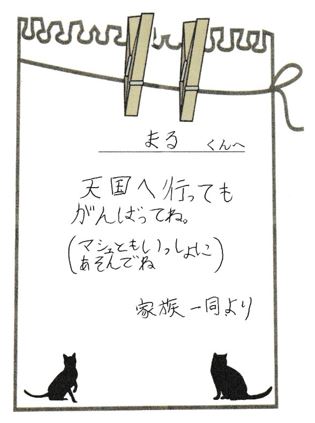 まる くんへ
天国へ行っても
がんばってね。
(マシュともいっしょに
あそんでね)
家族一同より